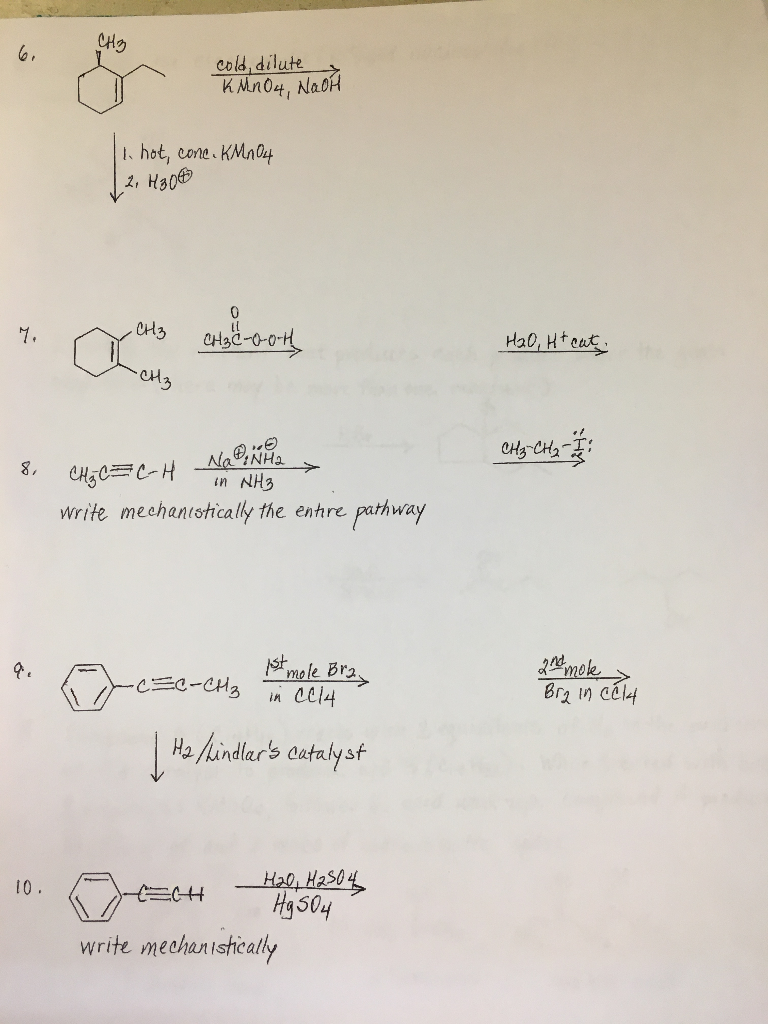 6.
CH3
cold, dilute
KMnO4, NaOH
1. hot, conc. KMnO4
2. H3O⊕
7.
CH3
CH3
O
CH3C-O-O-H
H2O, H+ cat.
8.
CH3C≡C-H
Na⊕ :N̈H2⊖
in NH3
CH3-CH2-Ï:
write mechanistically the entire pathway
9.
-C≡C-CH3
1st mole Br2
in CCl4
2nd mole
Br2 in CCl4
H2/Lindlar's catalyst
10.
-C≡CH
H2O, H2SO4
HgSO4
write mechanistically